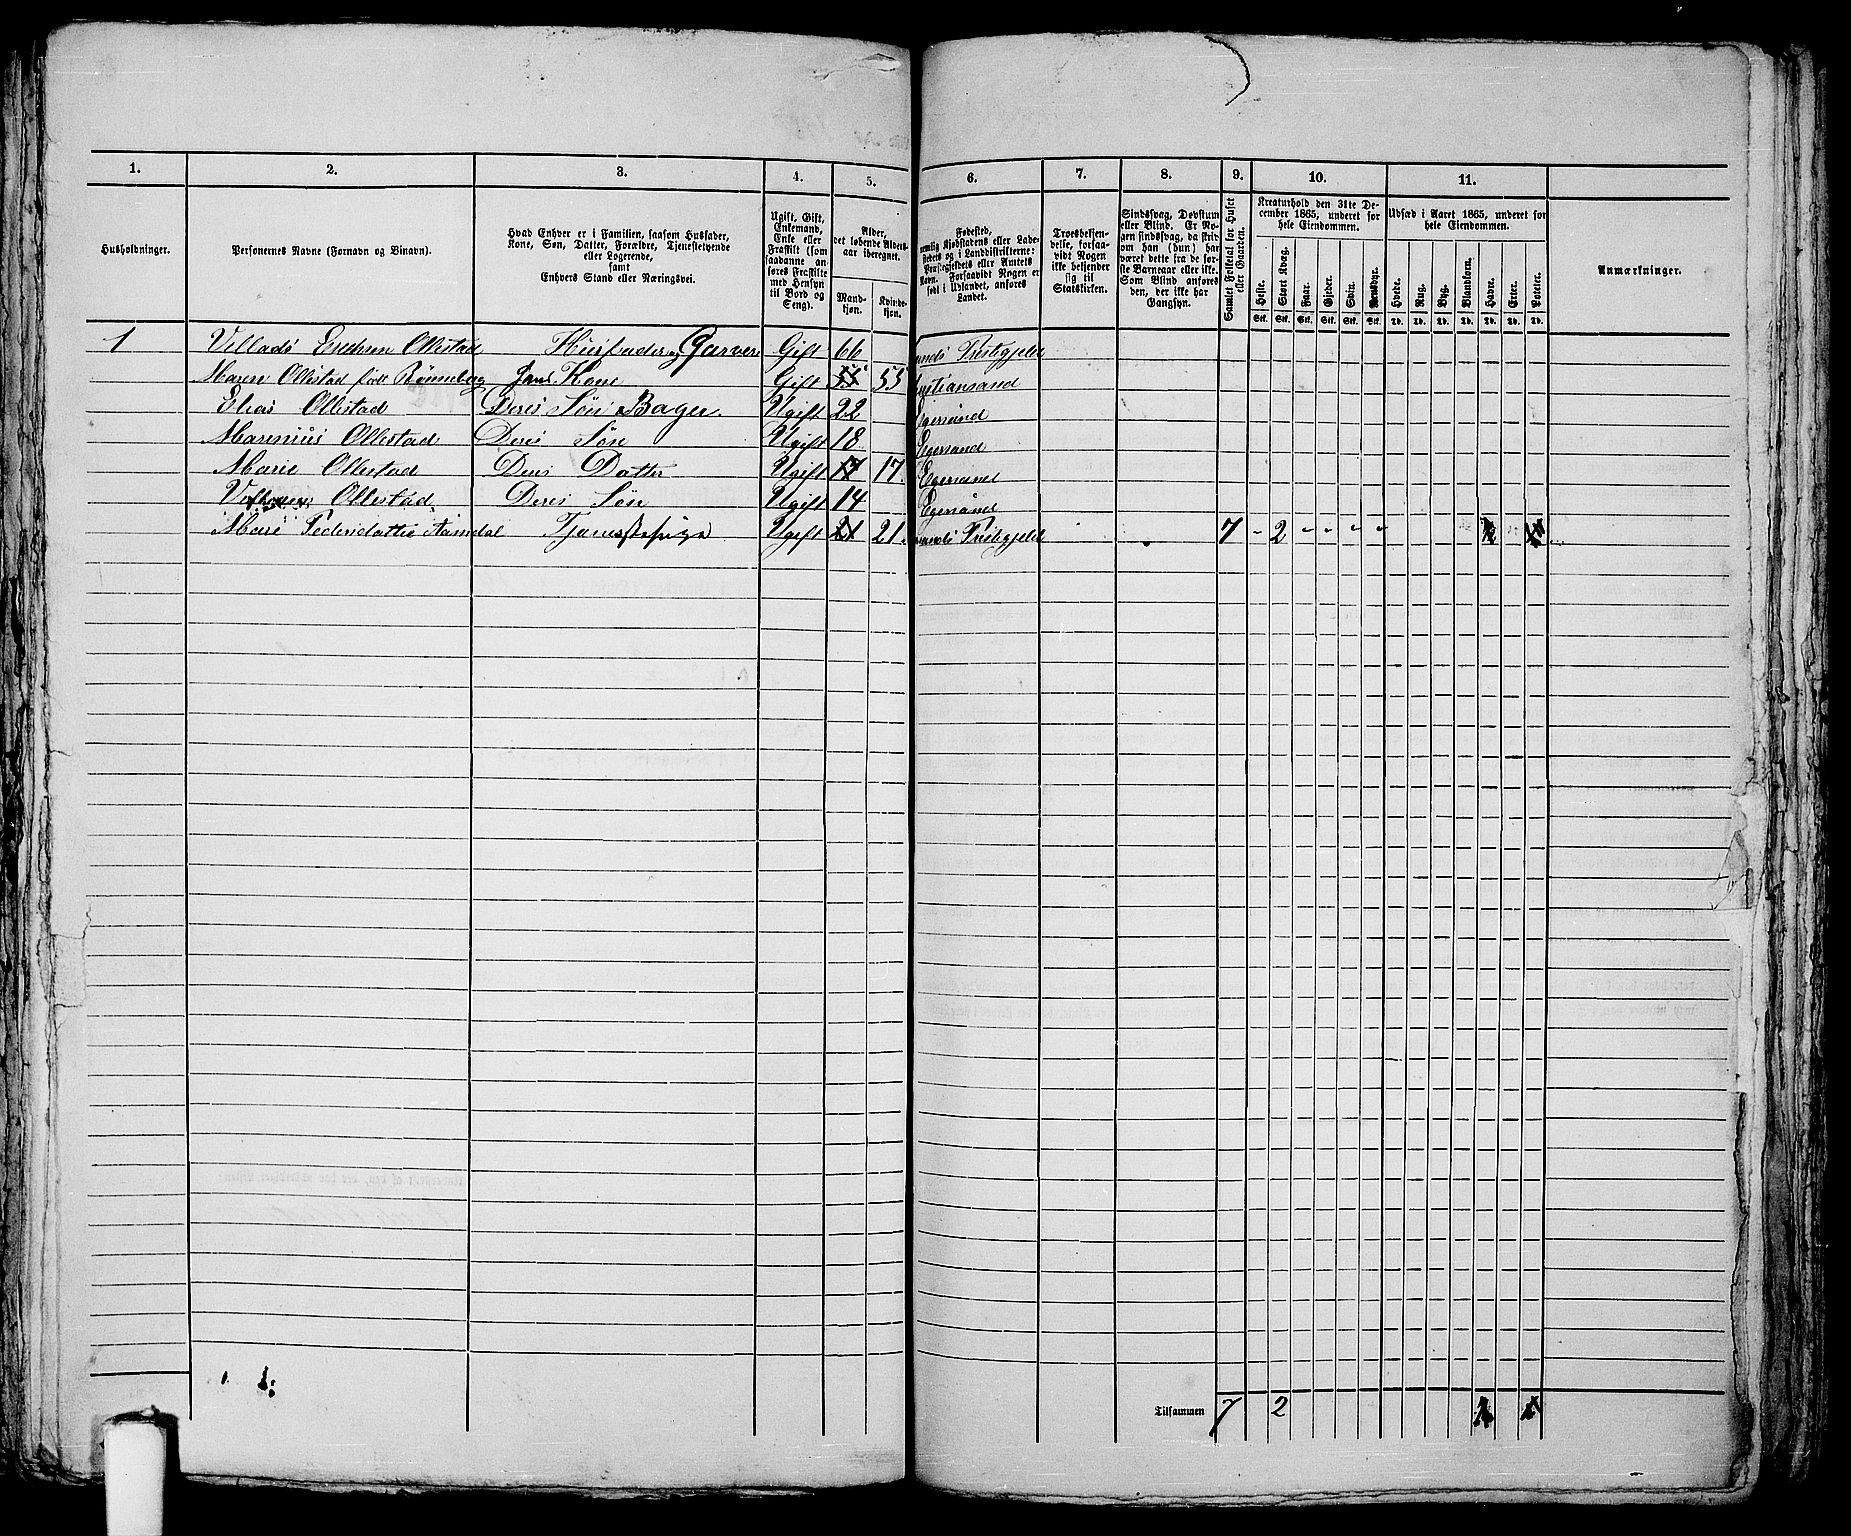 1. 2. 3. 4. 5. 6. 7. 8. 9. 10. 11.
Husholdninger.
Personernes Navne (Fornavn og Binavn).
Hvad Enhver er i Familien, saasom Husfader,
Kone, Søn, Datter, Forældre, Tjenestetyende
eller Logerende,
samt
Enhvers Stand eller Næringsvei.
Ugift, Gift,
Enkemand,
Enke eller
Fraskilt (som
saadanne an-
føres Fraskilte
med Hensyn
til Bord og
Seng).
Alder,
det løbende Alders-
aar iberegnet.
Mand-
kjøn.
Kvinde-
kjøn.
Fødested,
nemlig Kjøbstadens eller Lade-
stedets og i Landdistrikterne:
Præstegjeldets eller Amtets
Navn. Forsaavidt Nogen er
født i Udlandet, anføres
Landet.
Troesbekjen-
delse, forsaa-
vidt Nogen
ikke bekjender
sig til
Statskirken.
Sindssvag, Døvstum
eller Blind. Er No-
gen sindssvag, da skriv
om han (hun) har
været dette fra de før-
ste Barneaar eller ikke.
Som Blind anføres
den, der ikke har
Gangsyn.
Samlet Folketal for Huset
eller Gaarden.
Kreaturhold den 31te De-
cember 1865, underet for
hele Eiendommen.
Heste. Stort Kvæg. Faar. Gjeder. Svin. Rensdyr.
Stk. Stk. Stk. Stk. Stk. Stk.
Udsæd i Aaret 1865, underet for
hele Eiendommen.
Hvede. Rug. Byg. Blandkorn. Havre. Erter. Poteter.
Td. Td. Td. Td. Td. Td. Td.
Anmærkninger.
1 Villads Ollestad Husfader og Garver Gift 66 unds Prestegjeld
Maren Ollestad født Rønneberg Hans Kone Gift 55 55 istiansand
Elias Ollestad Deres Søn Bager Ugift 22 Egersund
Marenius Ollestad Deres Søn Ugift 18 Egersund
Marie Ollestad Deres Datter Ugift 17 17. Egersund
Ollestad Deres Søn Ugift 14 Egersund
Mari Pedersdatter Aamdal Tjenestepige Ugift 21 21. unds Prestegjeld 7 - 2 - - - -
Tilsammen 7 2